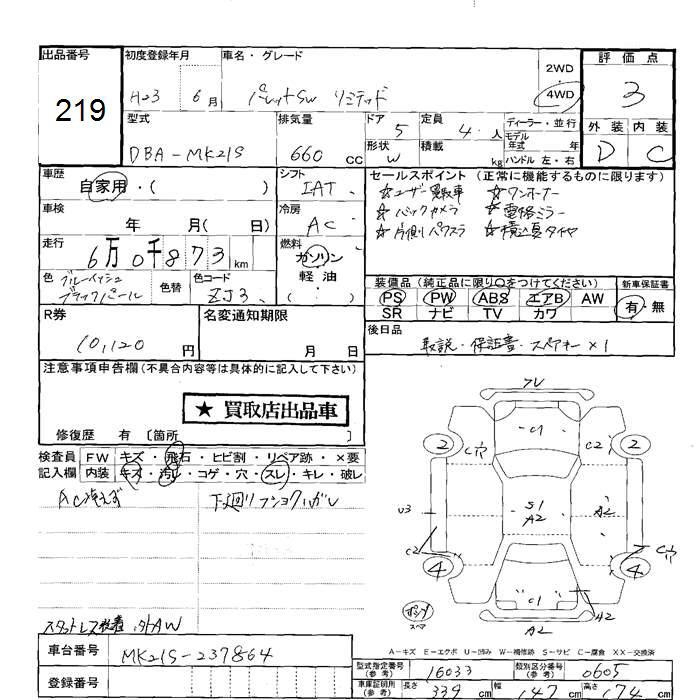 出品番号
219
初度登録年月
H23 6月
車名・グレード
パレットSW リミテッド
2WD
・
4WD
評価点
3
外装 内装
D C
型式
DBA-MK21S
排気量
660 CC
ドア 5
定員 4 人
形状 W
積載 kg
ディーラー・並行
モデル年式 年
ハンドル 左・右
車歴
自家用・( )
シフト
IAT
セールスポイント (正常に機能するものに限ります)
☆ユーザー買取車 ☆ワンオーナー
☆バックカメラ ☆電格ミラー
☆片側パワスラ ☆積込夏タイヤ
車検
年 月( 日)
冷房
AC
走行
6万0千873km
燃料
ガソリン
軽油
( : )
色 ブルーイッシュ
ブラックパール
色替
色コード
ZJ3
装備品 (純正品に限り○をつけてください)
PS PW ABS エアB AW
SR ナビ TV カワ
新車保証書
有・無
R券
10,120 円
名変通知期限
月 日
後日品
取説・保証書・スペアキー×1
注意事項申告欄(不具合内容等は具体的に記入して下さい)
★ 買取店出品車
修復歴 有 〔箇所 〕
検査員 FW キズ・飛石・ヒビ割・リペア跡・×要
記入欄 内装 キズ・汚れ・コゲ・穴・スレ・キレ・破レ
AC冷えず
下廻りフショクハガレ
スタットレス装着 社外AW
車台番号
MK21S-237864
登録番号
フレ
C1
2
C2
2
U3
S1
A2
A2
C2
4
4
C1
A2
A2
A-キズ E-エクボ U-凹み W-補修跡 S-サビ C-腐食 XX-交換済
型式指定番号(参考) 16033
類別区分番号(参考) 0605
車庫証明用(参考) 長さ 339 cm 幅 147 cm 高さ 174 cm